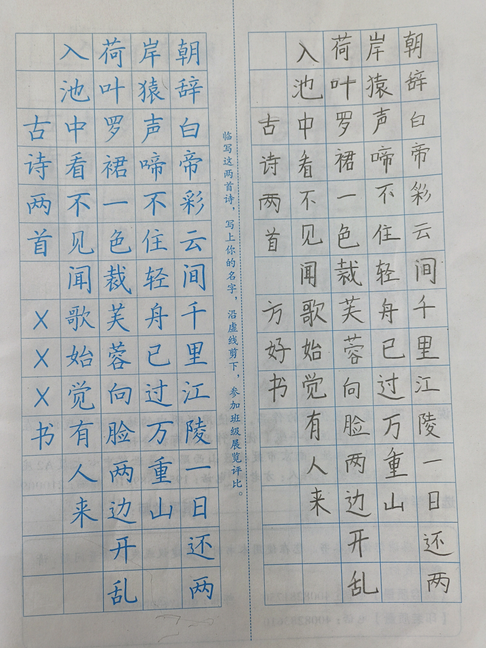 朝辞白帝彩云间千里江陵一日还两
岸猿声啼不住轻舟已过万重山
荷叶罗裙一色裁芙蓉向脸两边开乱
入池中看不见闻歌始觉有人来
古诗两首 方好书
临写这两首诗，写上你的名字，沿虚线剪下，参加班级展览评比。
朝辞白帝彩云间千里江陵一日还两
岸猿声啼不住轻舟已过万重山
荷叶罗裙一色裁芙蓉向脸两边开乱
入池中看不见闻歌始觉有人来
古诗两首 XXX书